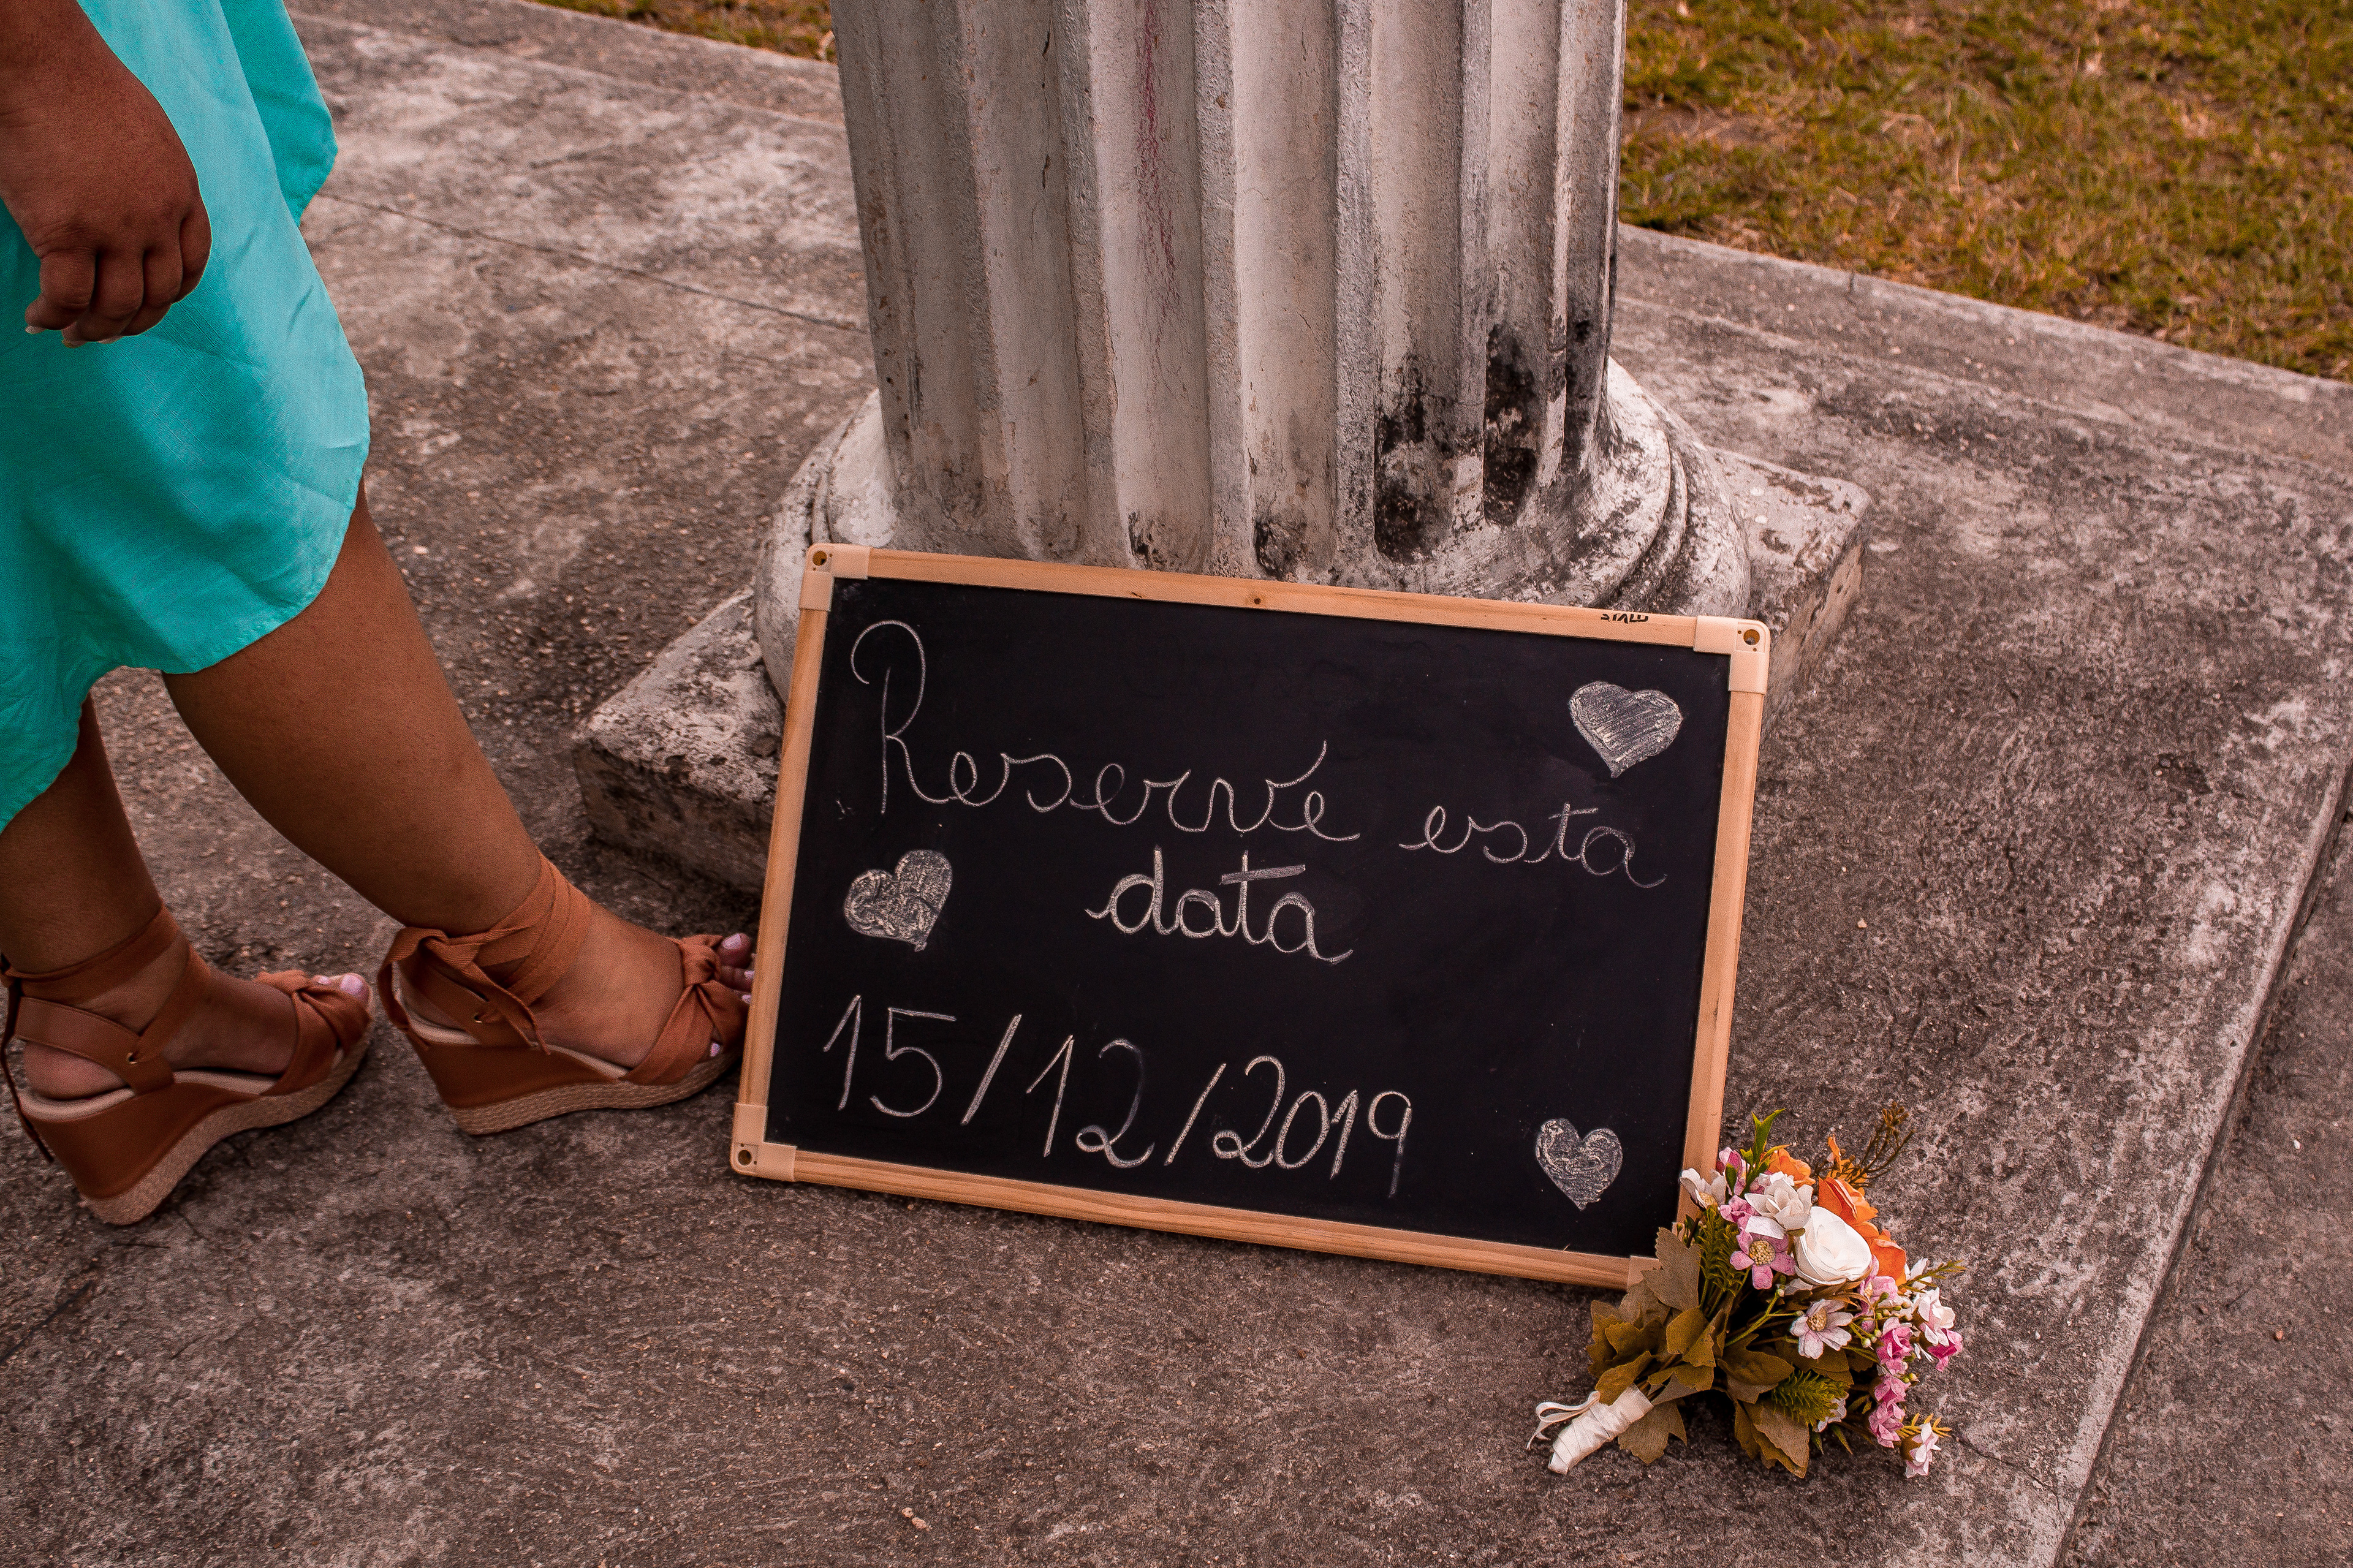 Reserve esta
data
15/12/2019